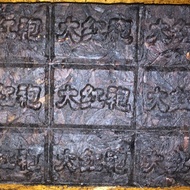 大红袍 大红袍 大红袍
大红袍 大红袍 大红袍
大红袍 大红袍 大红袍